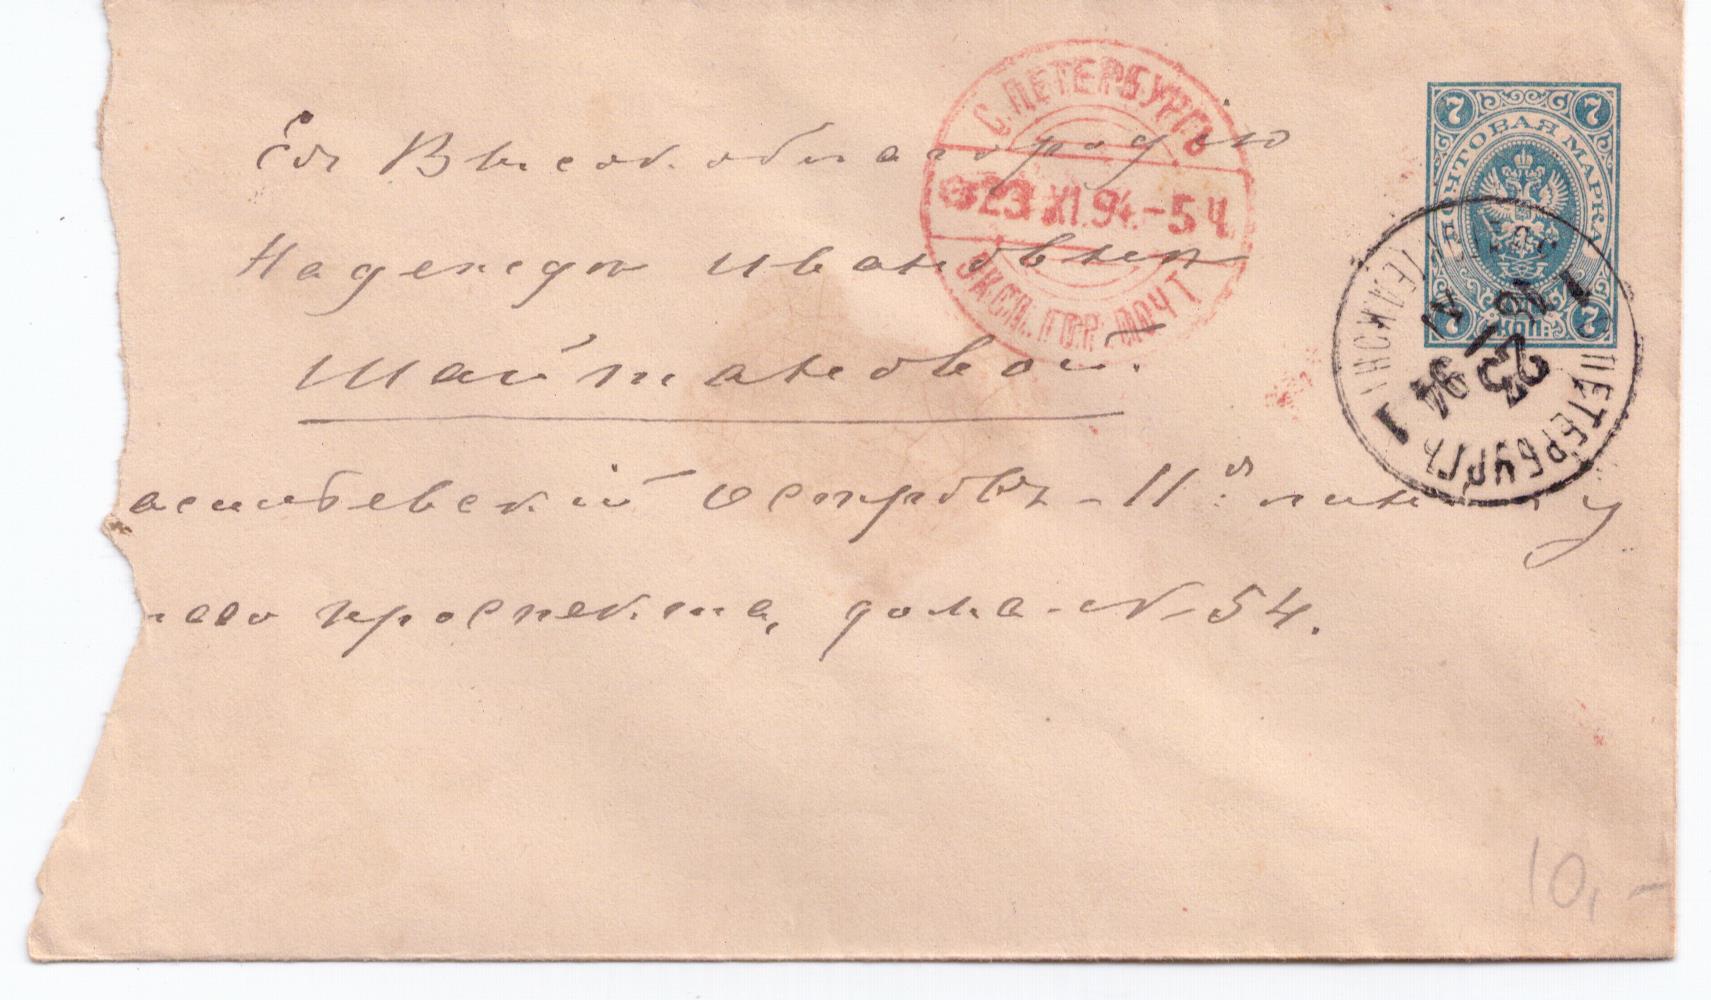 Ея Высокоблагородiю
Надеждѣ Ивановнѣ
Шайтановой.
асильевскiй Островъ - 11ая линiя у
лаго проспекта, домъ № 54.
С. ПЕТЕРБУРГЪ
23 XI.94.-5 Ч
ЭКСП. ГОР. ПОЧТ
7 7
ПОЧТОВАЯ МАРКА
7 КОП. 7
С ПЕТЕРБУРГЪ
1 1
23
XI
94
10,-